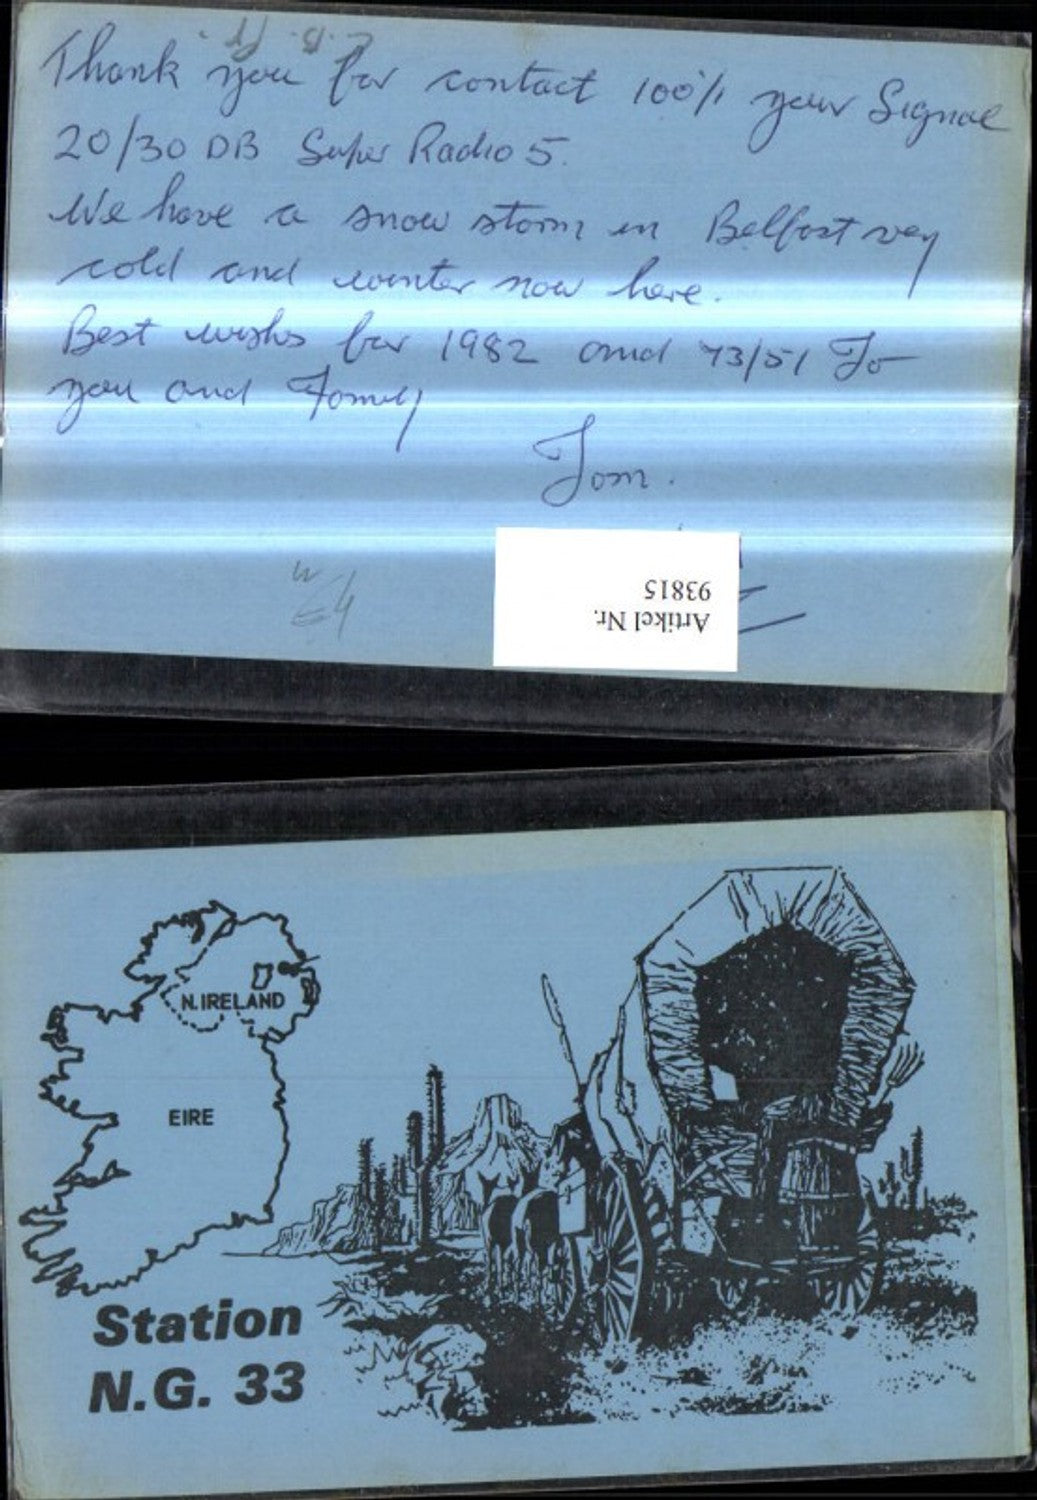 Thank you for contact 100% your Signal
20/30 DB Super Radio 5.
We have a snow storm in Belfast very
cold and winter now here.
Best wishs for 1982 and 73/51 To
you and Family
Tom.
Artikel Nr.
93815
N.IRELAND
EIRE
Station
N.G. 33